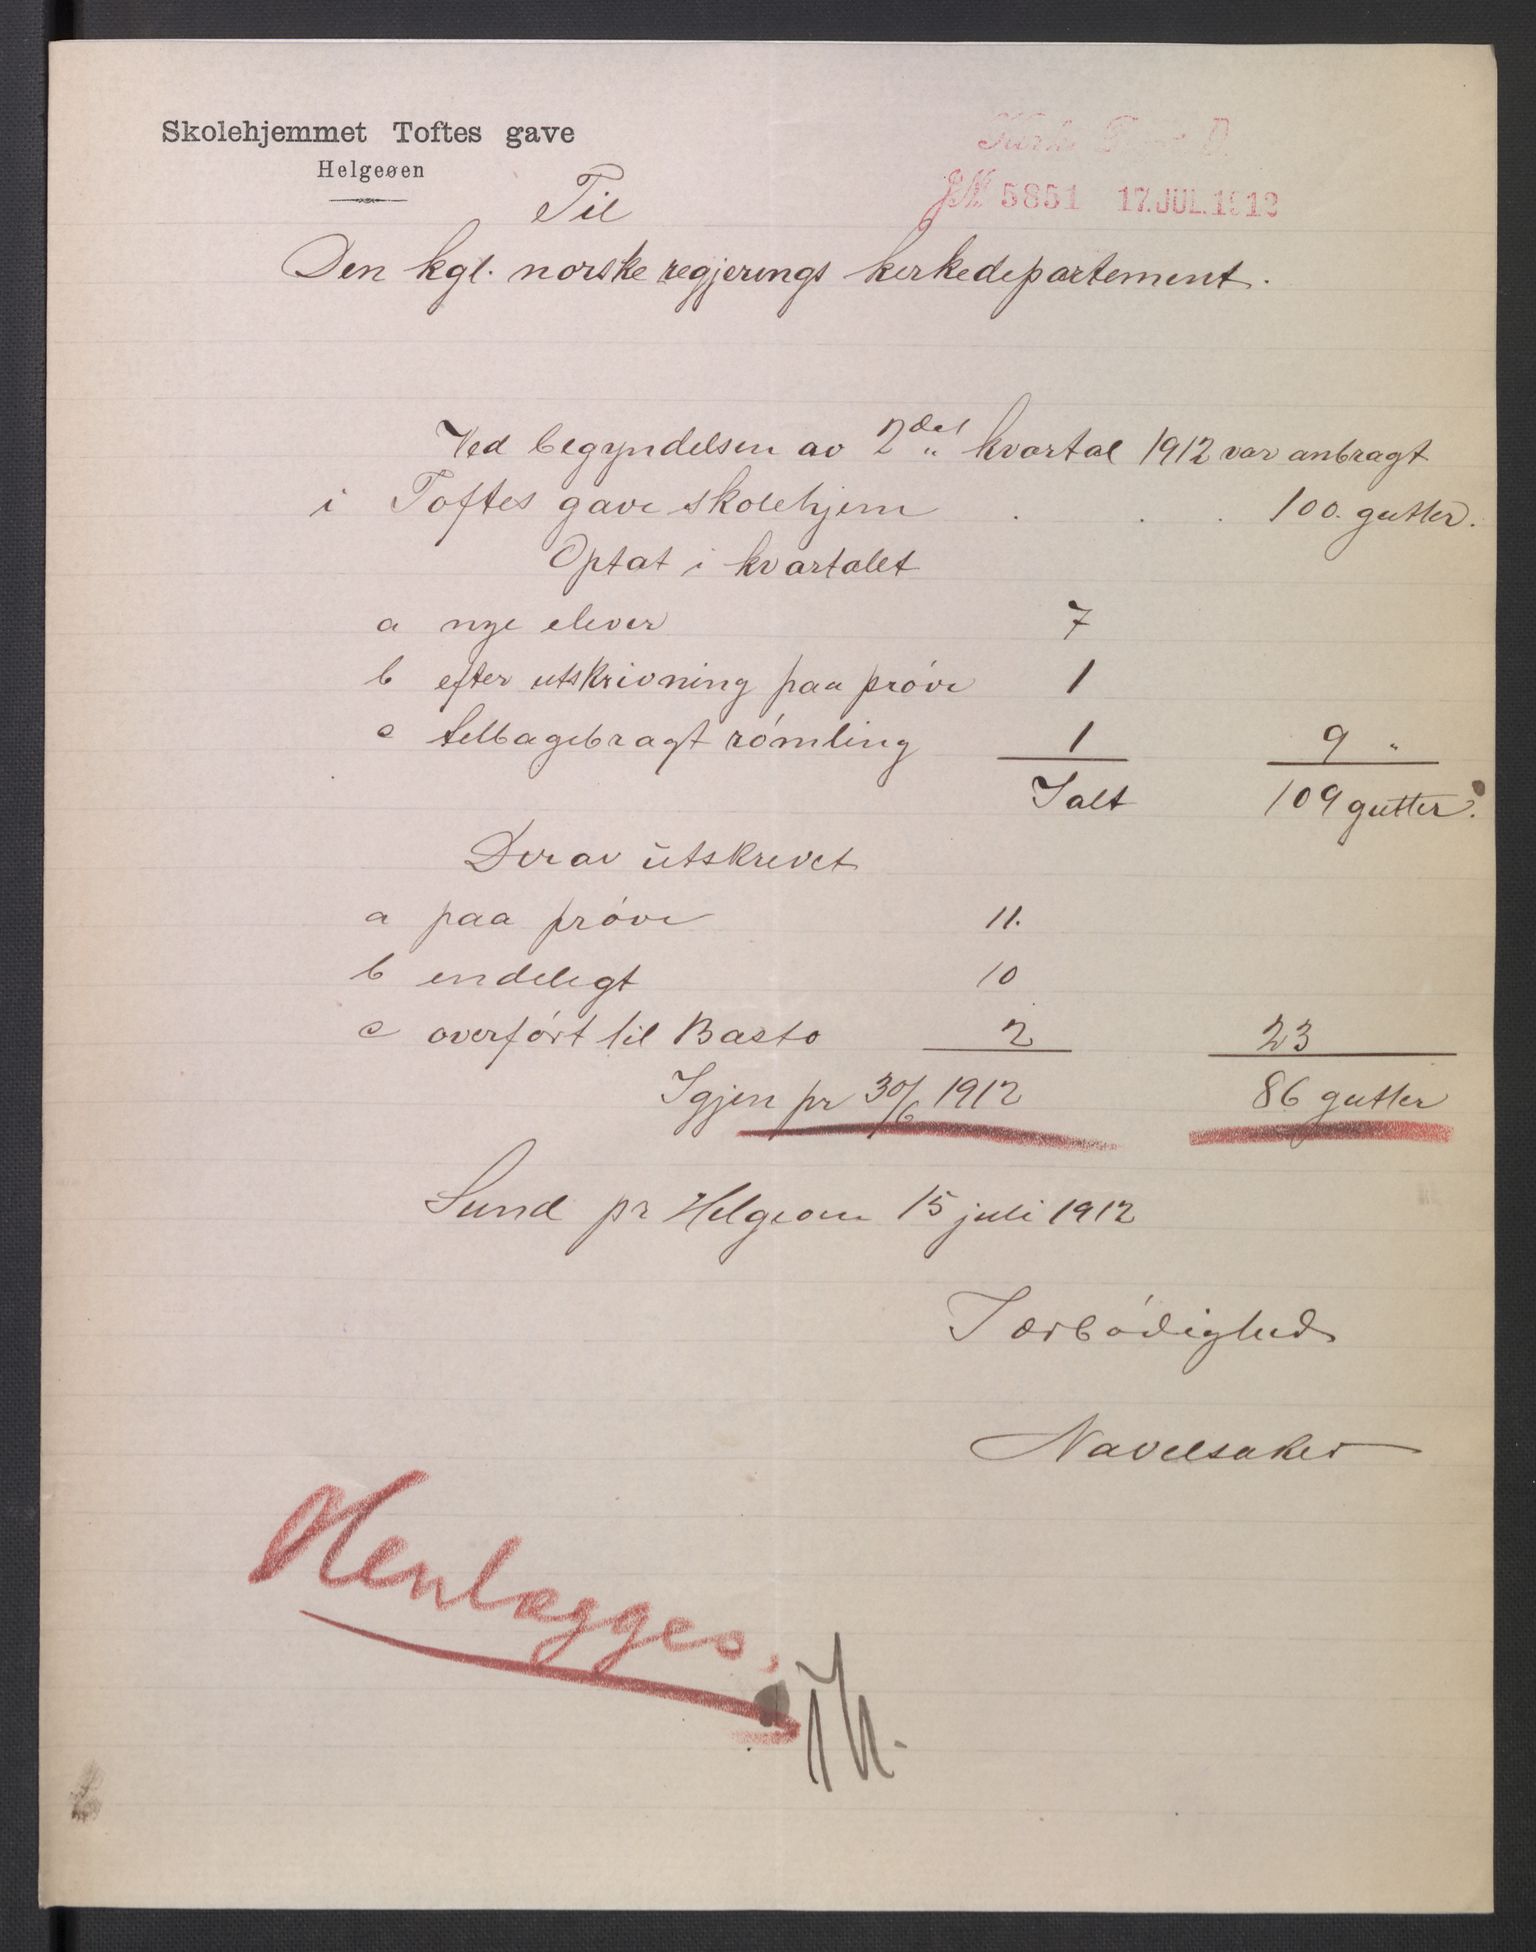 Skolehjemmet Toftes gave
Helgeøen
JNo 5851 17.JUL.1912
Til
Den kgl. norske regjerings kirkedepartement.
Ved begyndelsen av 2det kvartal 1912 var anbragt
i Toftes gave skolehjem . . . 100 gutter.
Optat i kvartalet
a nye elever 7
b efter utskrivning paa prøve 1
c tilbagebragt rømling 1 9 "
Ialt 109 gutter.
Derav utskrevet
a paa prøve 11.
b endeligt 10
c overført til Bastø 2 23
Igjen pr 30/6 1912 86 gutter
Sund pr Helgeøen 15 juli 1912
Ærbødigst
Navelsaker
Henlægges.